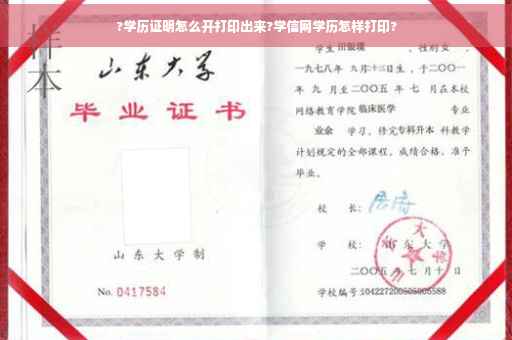 ?学历证明怎么开打印出来?学信网学历怎样打印?
样本
山东大学
毕业证书
山东大学制
No. 0417584
学生 田银瑞 ,性别女,
一九七八年 九月十三日生,于二〇〇一
年 九 月至二〇〇五 年 七 月在本校
网络教育学院临床医学 专业
业余 学习,修完专科升本 科教学
计划规定的全部课程,成绩合格,准予
毕业。
校 长:
学 校: 山东大学
二〇〇五 年 七 月 十 日
学校编号:104227200505005588